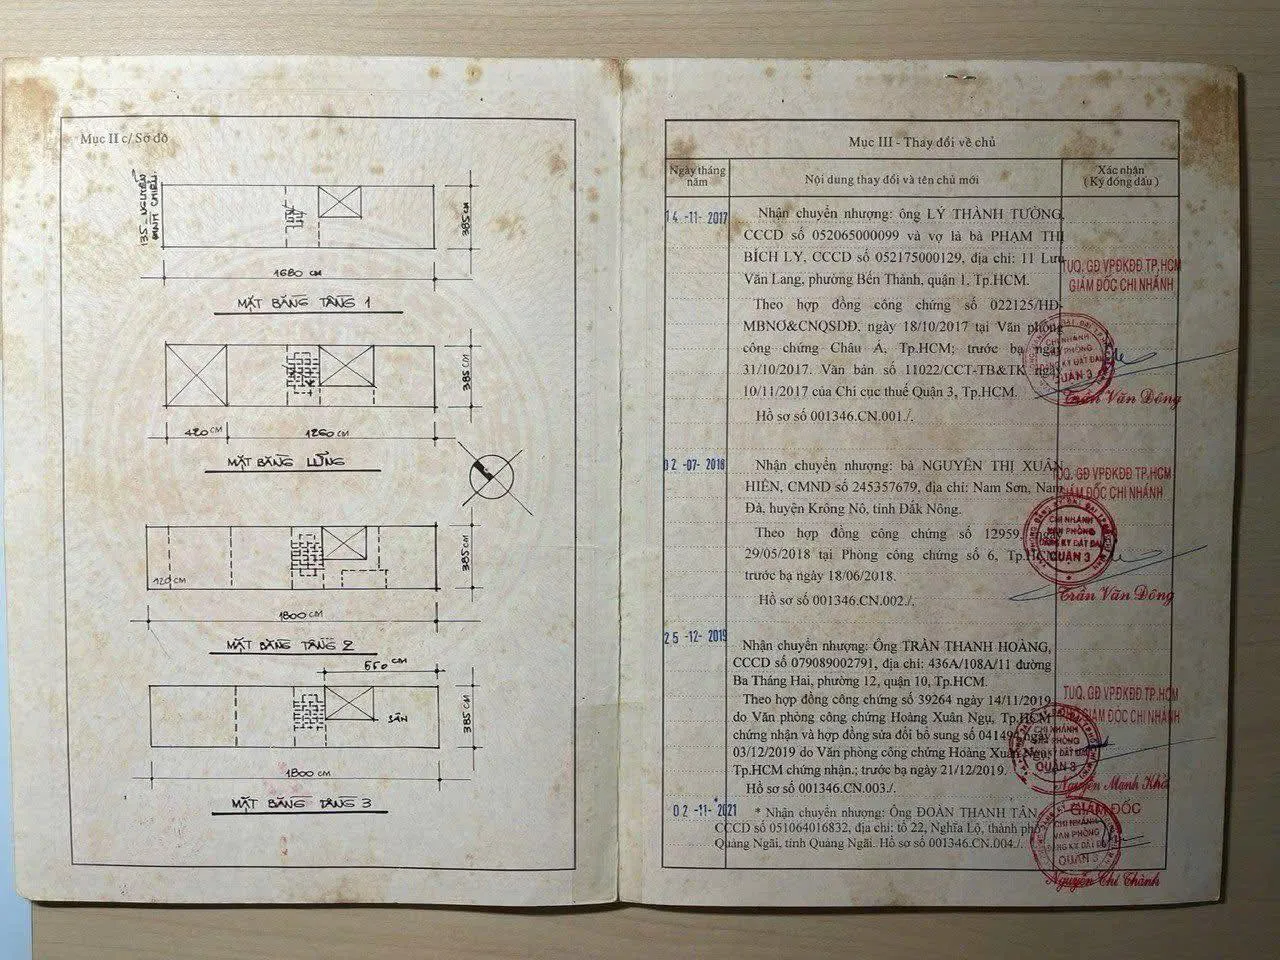 Mục II c/ Sơ đồ
135 - NGUYỄN
ĐÌNH CHIỂU
385 CM
1680 CM
MẶT BẰNG TẦNG 1
385 CM
420 CM
1260 CM
MẶT BẰNG LỬNG
385 CM
120 CM
1800 CM
MẶT BẰNG TẦNG 2
550 CM
SÂN
385 CM
1800 CM
MẶT BẰNG TẦNG 3
Mục III - Thay đổi về chủ
Ngày tháng năm
Nội dung thay đổi và tên chủ mới
Xác nhận
( Ký đóng dấu )
14 -11- 2017
Nhận chuyển nhượng: ông LÝ THÀNH TƯỜNG,
CCCD số 052065000099 và vợ là bà PHẠM THỊ
BÍCH LY, CCCD số 052175000129, địa chỉ: 11 Lưu
Văn Lang, phường Bến Thành, quận 1, Tp.HCM.
Theo hợp đồng công chứng số 022125/HĐ-
MBNƠ&CNQSDĐ, ngày 18/10/2017 tại Văn phòng
công chứng Châu Á, Tp.HCM; trước bạ ngày
31/10/2017. Văn bản số 11022/CCT-TB&TK ngày
10/11/2017 của Chi cục thuế Quận 3, Tp.HCM.
Hồ sơ số 001346.CN.001./.
TUQ. GĐ VPĐKĐĐ TP.HCM
GIÁM ĐỐC CHI NHÁNH
CHI NHÁNH
VĂN PHÒNG
ĐĂNG KÝ ĐẤT ĐAI
QUẬN 3
Trần Văn Đông
02 -07- 2018
Nhận chuyển nhượng: bà NGUYỄN THỊ XUÂN
HIÊN, CMND số 245357679, địa chỉ: Nam Sơn, Nam
Đà, huyện Krông Nô, tỉnh Đắk Nông.
Theo hợp đồng công chứng số 12959, ngày
29/05/2018 tại Phòng công chứng số 6, Tp.HCM;
trước bạ ngày 18/06/2018.
Hồ sơ số 001346.CN.002./.
TUQ. GĐ VPĐKĐĐ TP.HCM
GIÁM ĐỐC CHI NHÁNH
CHI NHÁNH
VĂN PHÒNG
ĐĂNG KÝ ĐẤT ĐAI
QUẬN 3
Trần Văn Đông
25 -12- 2019
Nhận chuyển nhượng: Ông TRẦN THANH HOÀNG,
CCCD số 079089002791, địa chỉ: 436A/108A/11 đường
Ba Tháng Hai, phường 12, quận 10, Tp.HCM.
Theo hợp đồng công chứng số 39264 ngày 14/11/2019
do Văn phòng công chứng Hoàng Xuân Ngụ, Tp.HCM
chứng nhận và hợp đồng sửa đổi bổ sung số 041494 ngày
03/12/2019 do Văn phòng công chứng Hoàng Xuân Ngụ,
Tp.HCM chứng nhận.; trước bạ ngày 21/12/2019.
Hồ sơ số 001346.CN.003./.
TUQ. GĐ VPĐKĐĐ TP.HCM
GIÁM ĐỐC CHI NHÁNH
CHI NHÁNH
VĂN PHÒNG
ĐĂNG KÝ ĐẤT ĐAI
QUẬN 3
Nguyễn Mạnh Khả
02 -11- 2021
* Nhận chuyển nhượng: Ông ĐOÀN THANH TÂN
CCCD số 051064016832, địa chỉ: tổ 22, Nghĩa Lộ, thành phố
Quảng Ngãi, tỉnh Quảng Ngãi. Hồ sơ số 001346.CN.004./.
GIÁM ĐỐC
CHI NHÁNH
VĂN PHÒNG
ĐĂNG KÝ ĐẤT ĐAI
QUẬN 3
Nguyễn Chí Thành